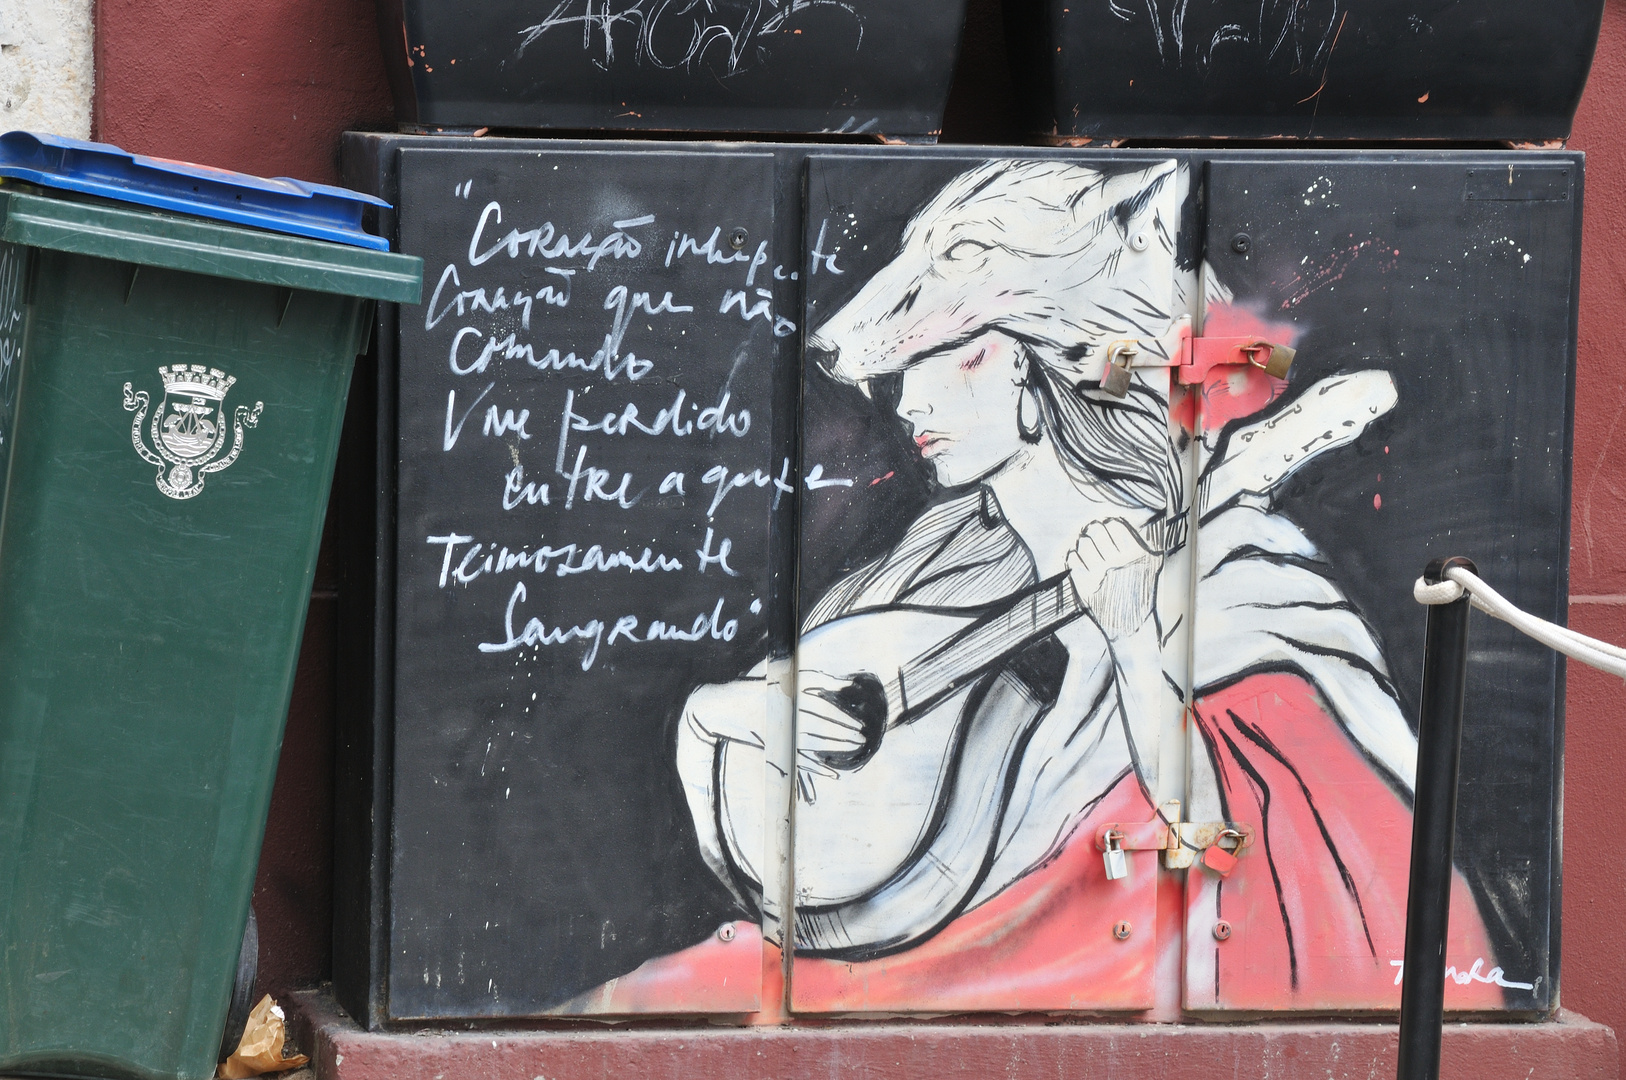 "Coração independente
Coração que não
Comando
Vive perdido
entre a gente
Teimosamente
Sangrando"